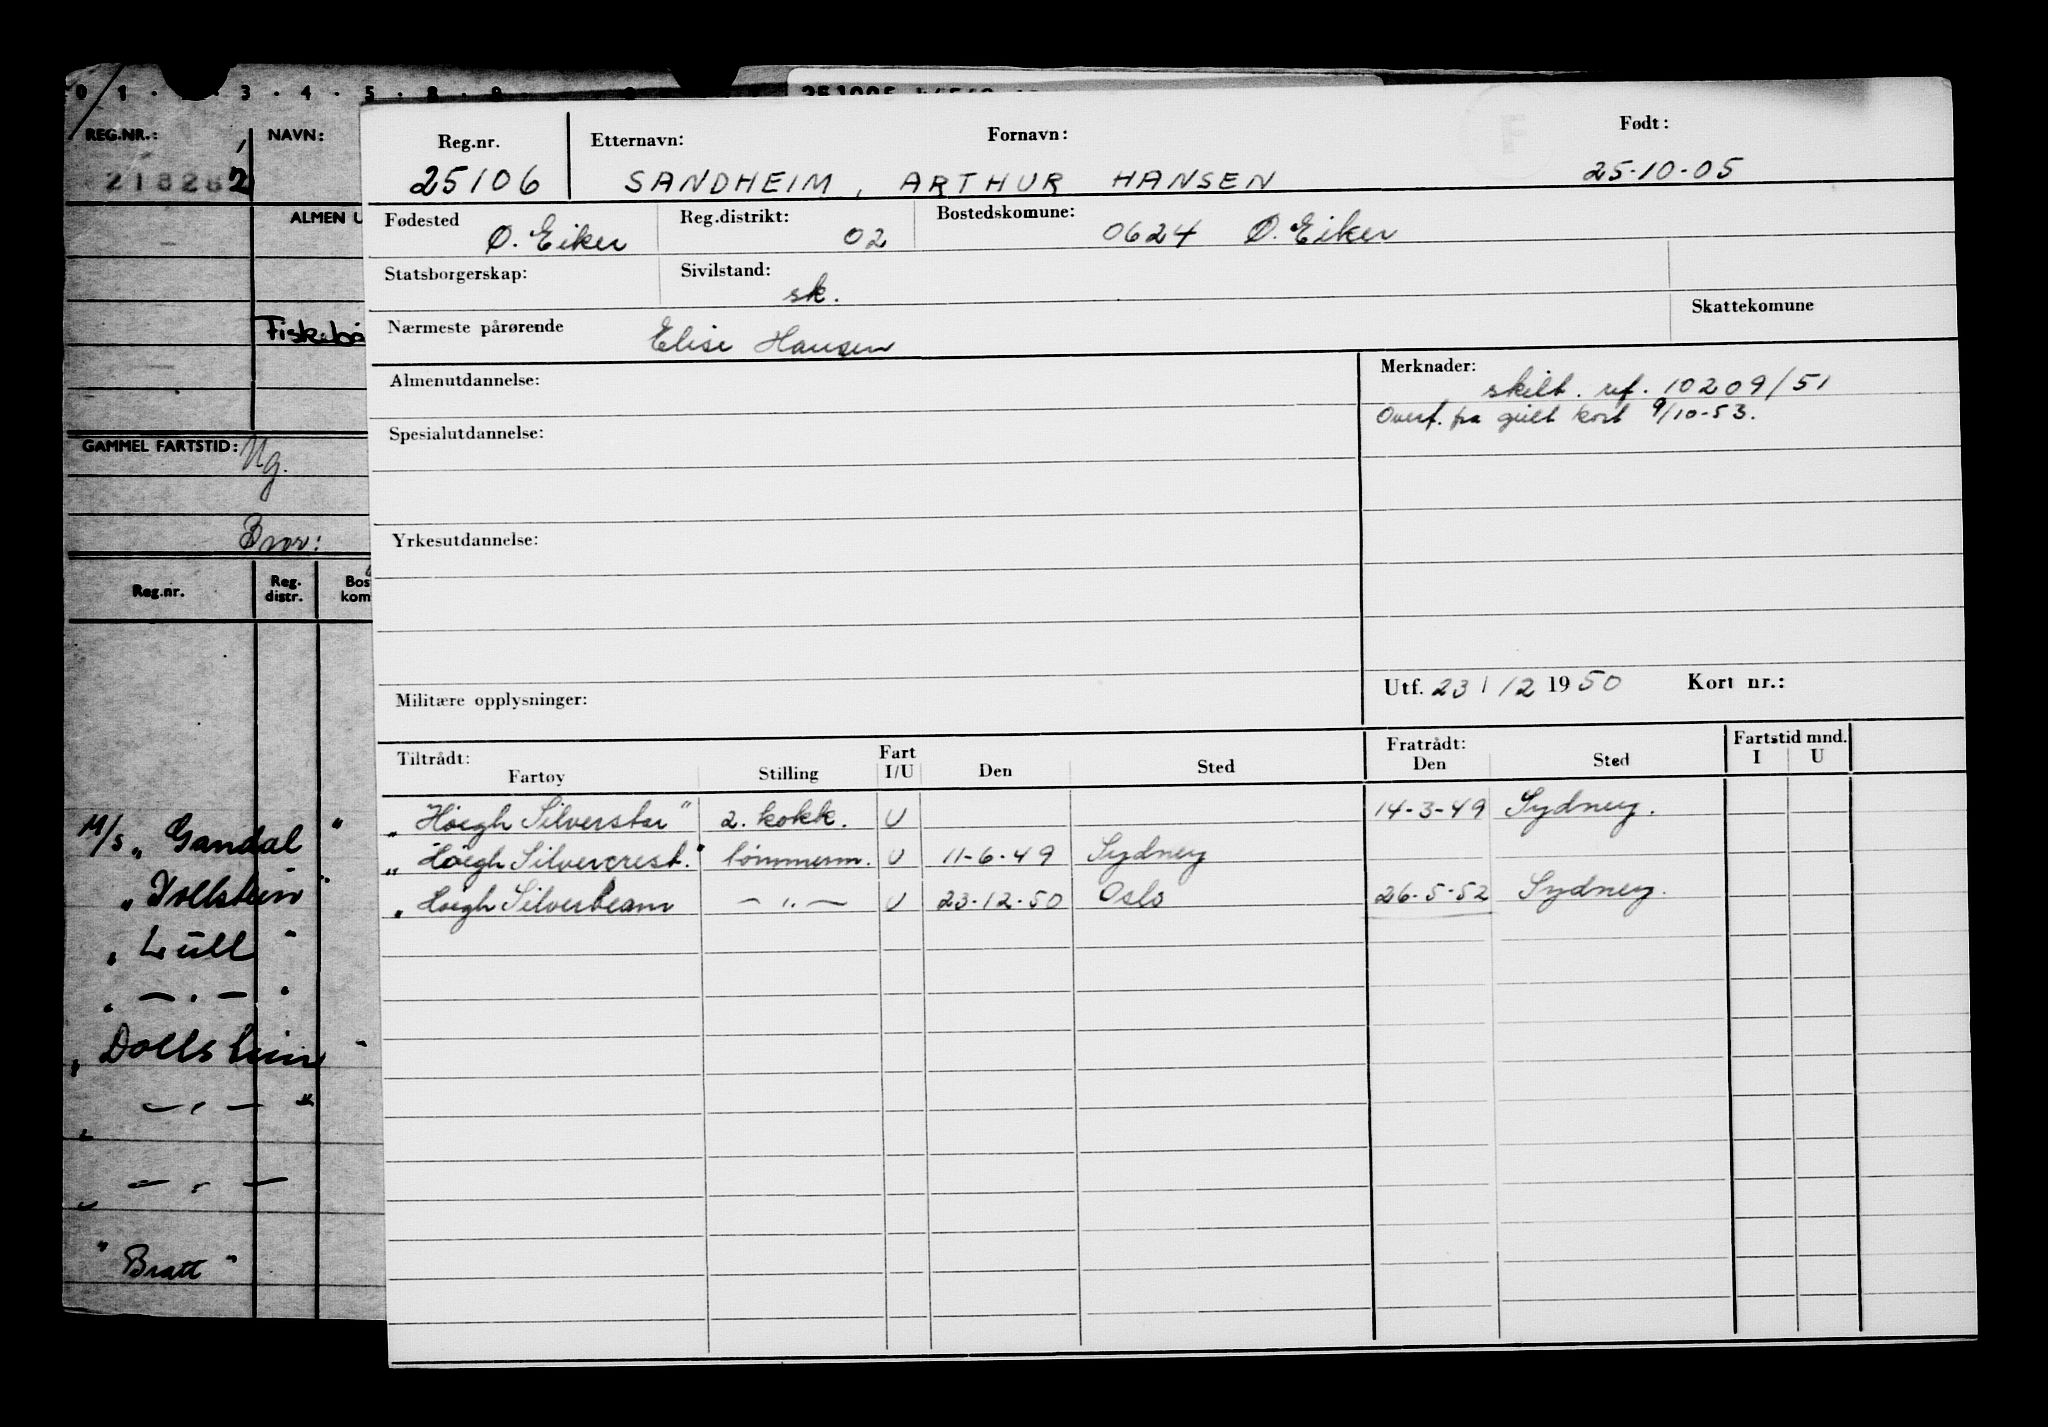 0 1 · · 3 · 4 · 5 · 8 · 9
REG.NR.: NAVN:
218282
ALMEN U
GAMMEL FARTSTID: Ug.
Bror:
Reg.nr. Reg. distr. Bos kom
M/S „Gandal"
„Dollstein"
„Lull"
„ — . — "
„Dollstein"
— „ — "
— „ —
"Bratt"
Reg.nr. Etternavn: Fornavn: Født:
25106 SANDHEIM, ARTHUR HANSEN 25-10-05
Fødested Ø. Eiker Reg.distrikt: 02 Bostedskomune: 0624 Ø. Eiker
Statsborgerskap: Sivilstand: sk.
Skattekomune
Nærmeste pårørende Elise Hansen
Almenutdannelse: Merknader: skilt. ref. 10209/51
Overf. fra gult kort 9/10-53.
Spesialutdannelse:
Yrkesutdannelse:
Militære opplysninger: Utf. 23/12 1950 Kort nr.:
Tiltrådt: Fart Fratrådt: Fartstid mnd.
Fartøy Stilling I/U Den Sted Den Sted I U
„Høegh Silverstar" 2. kokk. U 14-3-49 Sydney.
„Høegh Silvercrest." tømmerm. U 11-6-49 Sydney
„Høegh Silverbeam — „ — U 23-12-50 Oslo 26-5-52 Sydney.